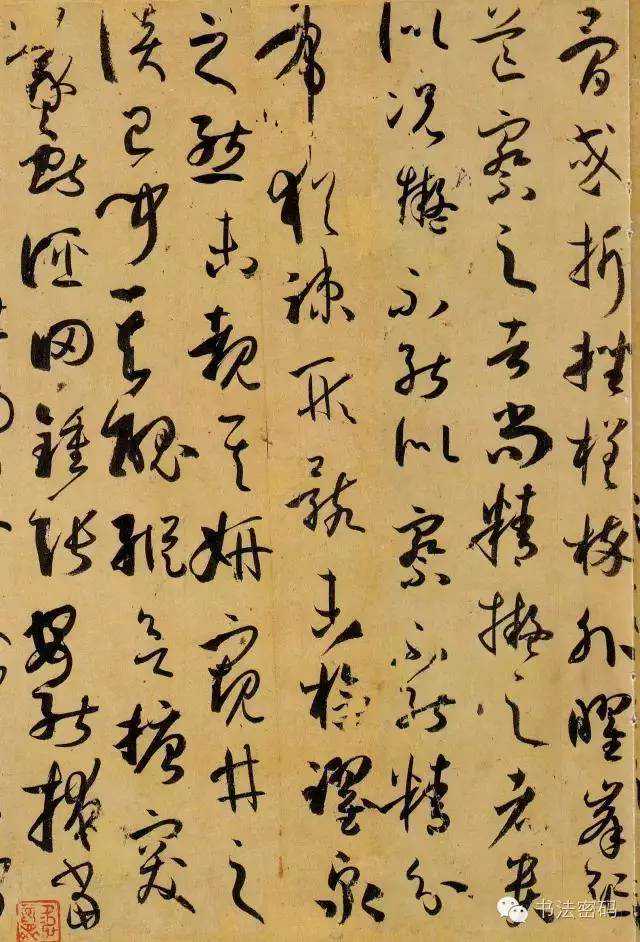 骨或折挫槎枿外曜鋒
芒察之者尚精擬之者貴
似況擬不能似察不能精分
布猶疎形骸未檢躍泉
之態未覩其妍窺井之
談已聞其醜縱欲搪突
羲獻誣罔鍾張安能掩當
书法密码